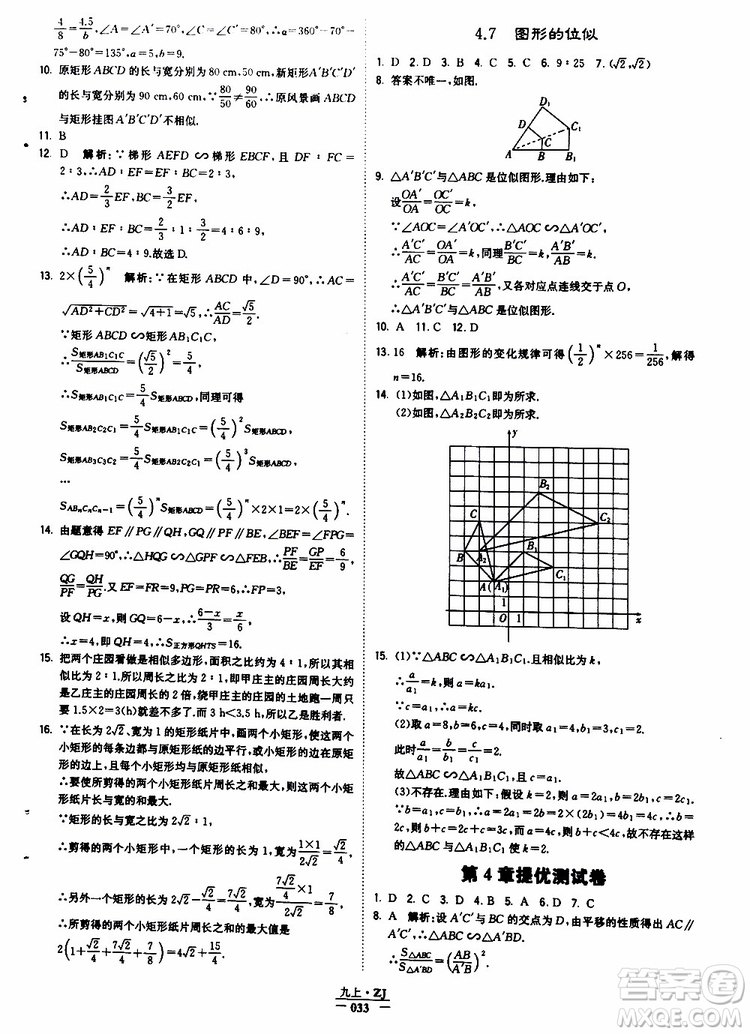 4/8=4.5/b,∠A=∠A'=70°,∠C=∠C'=80°,∴α=360°-70°-
75°-80°=135°,a=6,b=9.
10. 原矩形ABCD的长与宽分别为80 cm,50 cm,新矩形A'B'C'D'的
长与宽分别为90 cm,60 cm,∵80/50≠90/60,∴原风景画ABCD
与矩形挂图A'B'C'D'不相似.
11. B
12. D 解析:∵梯形AEFD∽梯形EBCF,且DF∶FC=
2∶3,∴AD∶EF=EF∶BC=2∶3,
∴AD=2/3EF,BC=3/2EF,
∴AD∶EF∶BC=2/3∶1∶3/2=4∶6∶9,
∴AD∶BC=4∶9.故选D.
13. 2×(5/4)ⁿ 解析:∵在矩形ABCD中,∠D=90°,∴AC=
√(AD²+CD²)=√(4+1)=√5,∴AC/AD=√5/2,
∵矩形ABCD∽矩形AB₁C₁C,
∴S矩形AB₁C₁C/S矩形ABCD=(√5/2)²=5/4,
∴S矩形AB₁C₁C=5/4S矩形ABCD,同理可得
S矩形AB₂C₂C₁=5/4S矩形AB₁C₁C=(5/4)²S矩形ABCD,
S矩形AB₃C₃C₂=5/4S矩形AB₂C₂C₁=(5/4)³S矩形ABCD,
…
S矩形ABₙCₙCₙ₋₁=(5/4)ⁿS矩形ABCD=(5/4)ⁿ×2×1=2×(5/4)ⁿ.
14. 由题意得EF∥PG∥QH,GQ∥PF∥BE,∠BEF=∠FPG=
∠GQH=90°,∴△HQG∽△GPF∽△FEB,∴PF/BE=GP/EF=6/9,
QG/PF=QH/PG.∵EF=FR=9,∴FP=9-3=6.
设QH=x,则GQ=6-x,∴(6-x)/6=x/6+x,
∴x=4,即QH=4,∴S正方形QHTS=16.
15. 把两个庄园看做是相似多边形,面积之比为4∶1,所以相似比
为2∶1,所以周长之比为2∶1,即甲庄主的庄园的周长是乙
庄主的庄园周长的2倍,绕甲庄主的庄园的土地跑一周可以
1.5×2=3(h)就差不多了.3 h<3.5 h,所以乙是胜利者.
16. ∵在长为2√2,宽为1的矩形纸片中,剪两个小矩形,使这两个
小矩形的每条边都与原矩形纸片的边平行,或小矩形的边在原
矩形的边上,且每个小矩形均与原矩形纸片相似,
∴要使所剪得的两个小矩形纸片周长之和最大,则这两个小矩
形纸片长与宽的和最大.
∵矩形的长与宽之比为2√2∶1,
∴剪得的两个小矩形中,一个矩形的长为1,宽为(1×1)/(2√2)=√2/4,
∴另外一个矩形的长为2√2-√2/4=7√2/4,宽为(7√2/4×1)/(2√2)=7/8,
∴所剪得的两个小矩形纸片周长之和的最大值是
2(1+√2/4+7√2/4+7/8)=4√2+15/4.
4.7 图形的位似
1. D 2. D 3. B 4. D 5. C 6. 9∶25 7. (√2,√2)
8. 答案不唯一,如图.
D₁
D
C
C₁
A
B
B₁
9. △A'B'C'与△ABC是位似图形.理由如下:
设OA'/OA=OC'/OC=k,
∵∠AOC=∠A'OC',∴△AOC∽△A'OC',
∴A'C'/AC=OA'/OA=k,同理B'C'/BC=k,A'B'/AB=k,
∴A'C'/AC=B'C'/BC=A'B'/AB,又各对应点连线交于点O,
∴△A'B'C'与△ABC是位似图形.
10. A 11. C 12. D
13. 16 解析:由图形的变化规律可得(1/2)ⁿ×256=1/256,解得
n=16.
14. (1)如图,△A₁B₁C₁即为所求.
(2)如图,△A₂B₂C₂即为所求.
y
B₂
C
C₂
B
A₂
B₁
C₁
A(A₁)
1
O 1
x
15. (1)∵△ABC∽△A₁B₁C₁,且相似比为k(k>1),
∴a/a₁=k,∴a=ka₁.
(2)取a=8,b=6,c=4,a₁=4,b₁=3,c₁=2.
此时a/a₁=b/b₁=c/c₁=2,
故△ABC∽△A₁B₁C₁,且c=a₁.
(3)不存在.理由如下:假设k=2,则a=2a₁,b=2b₁,c=2c₁.
∵b=a₁,c=b₁,∴a=2a₁=2b=4b₁=4c,∴b=
2c.又∵b+c=2c+c=3c,4c>3c,即a>b+c,故不存在这样
的k=2.
第4章提优测试卷
1. D 2. C 3. C 4. A 5. D 6. D 7. C
8. A 解析:设A'C'与BC的交点为D,由平移的性质可得AC∥
A'C',∴△ABC∽△A'BD.
∴S△ABC/S△A'BD=(AB/A'B)²,
九上·ZJ
033
MXQE.COM